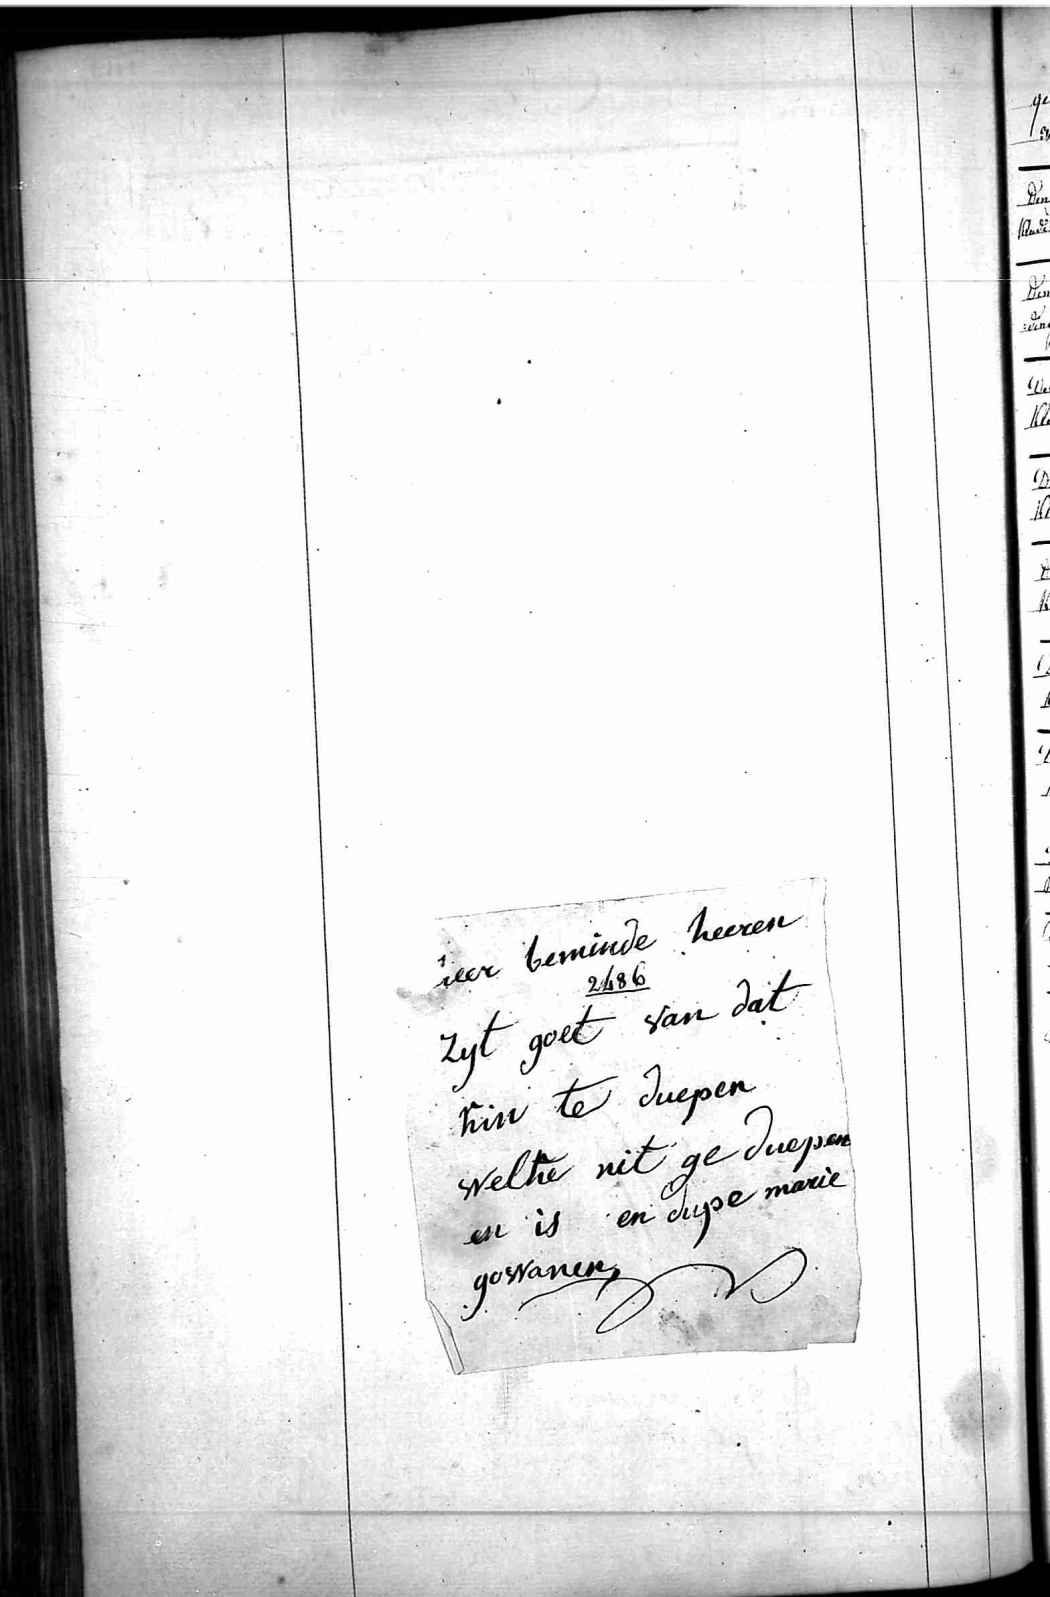 beminde heeren
2486
Zyt goet van dat
kin te duepen
welke nit ge duepen
en is en dupe marie
gowanen